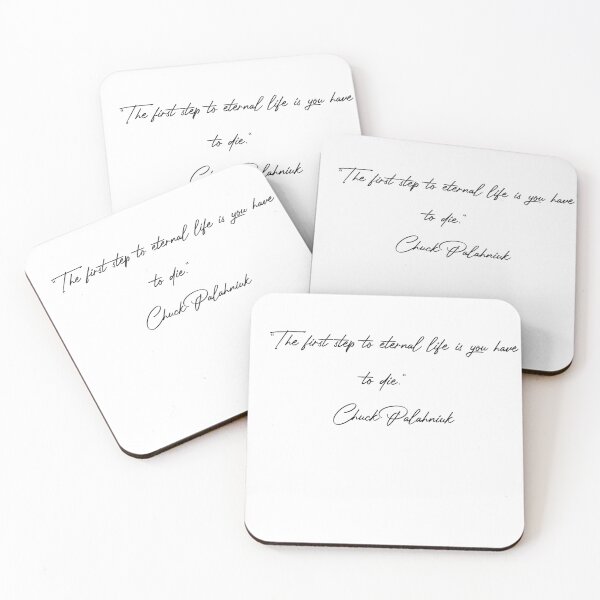 "The first step to eternal life is you have
to die."
Chuck Palahniuk
"The first step to eternal life is you have
to die."
Chuck Palahniuk
"The first step to eternal life is you have
to die."
Chuck Palahniuk
"The first step to eternal life is you have
to die."
Chuck Palahniuk